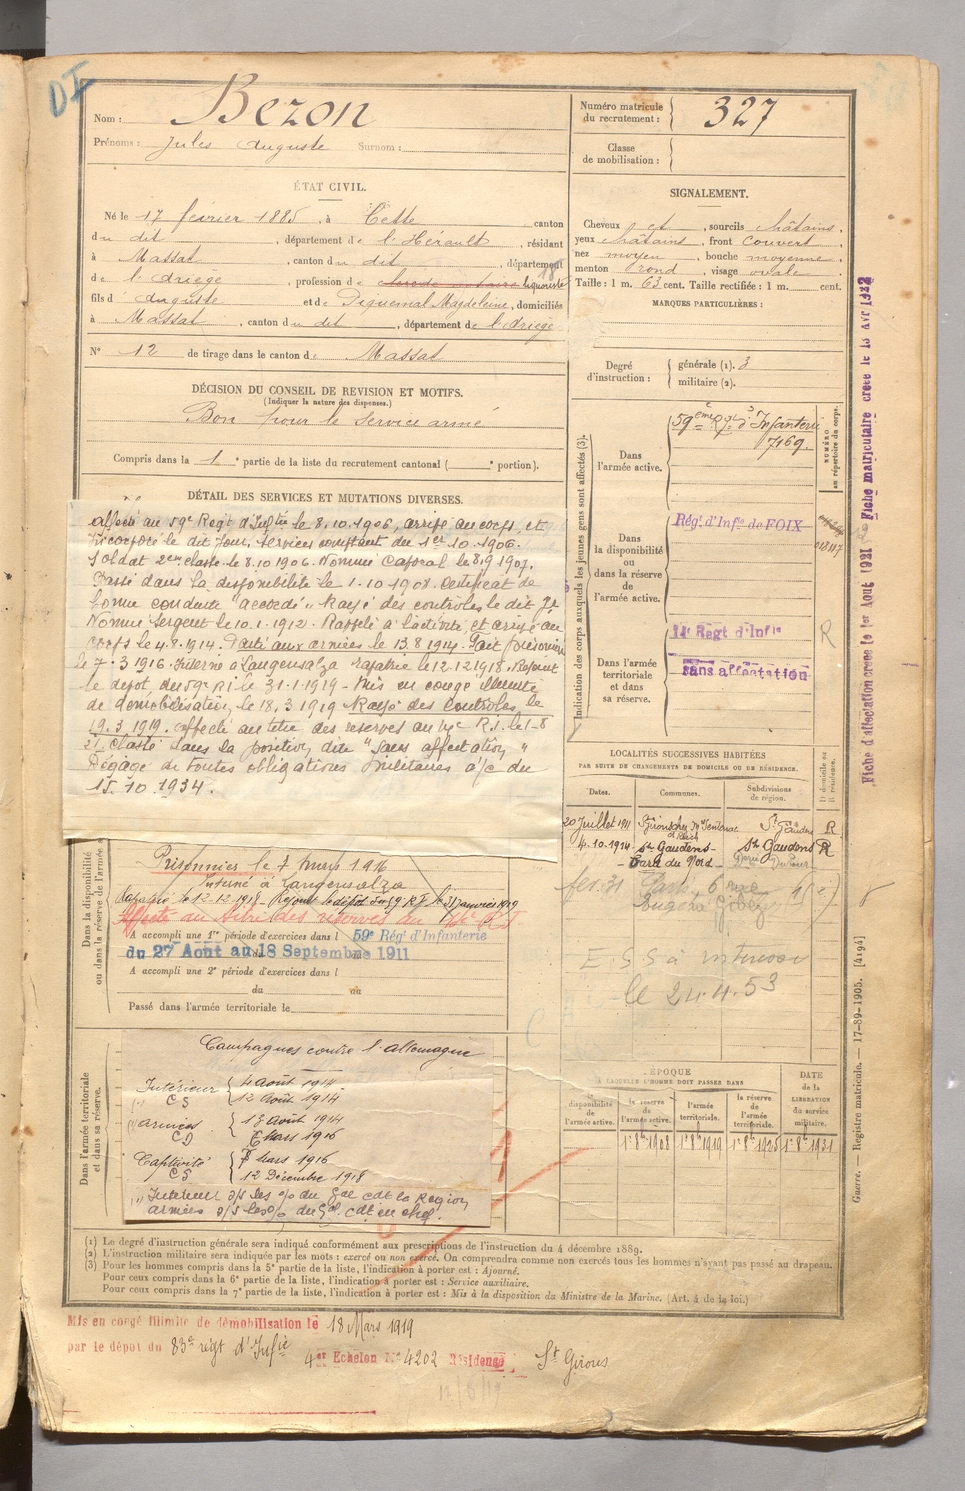 DI
Nom : Bezon
Prénoms : Jules Auguste Surnom :
ÉTAT CIVIL.
Né le 17 février 1885, à Cette canton
du dit, département de l'Hérault, résidant
à Massat, canton du dit, département
de l'Ariège, profession de clerc de notaire liquoriste
fils d'Auguste et de Piquemal Magdeleine, domiciliés
à Massat, canton du dit, département de l'Ariège
N° 12 de tirage dans le canton de Massat
DÉCISION DU CONSEIL DE REVISION ET MOTIFS.
(Indiquer la nature des dispenses.)
Bon pour le service armé
Compris dans la 1e partie de la liste du recrutement cantonal ( e portion).
DÉTAIL DES SERVICES ET MUTATIONS DIVERSES.
affecté au 59e Regt d'Inftie le 8.10.1906, arrivé au corps et
incorporé le dit jour, services comptant du 1er 10.1906.
Soldat 2eme classe le 8.10.1906. Nommé Caporal le 8.9.1907.
Passé dans la disponibilité le 1.10.1908. Certificat de
bonne conduite "accordé". Rayé des controles le dit jr
Nommé Sergent le 10.1.1912. Rappelé à l'activité et arrivé au
corps le 4.8.1914. Parti aux armées le 13.8.1914. Fait prisonnier
le 7.3.1916. Interné à Langensalza rapatrié le 12.12.1918. Rejoint
le dépot du 59e RI le 31.1.1919 - Mis en congé illimité
de démobilisation le 18.3.1919 Rayé des controles le
19.3.1919. affecté au titre des reserves au 14e R.I. le 1-8
21. Classé dans la position dite "Sans affectation"
Dégagé de toutes obligations militaires à/c du
15.10.1934.
Dans la disponibilité
ou dans la réserve de l'armée a
Prisonnier le 7 mars 1916
Interné à Langensalza
Rapatrié le 12-12-1918 - Rejoint le dépôt du 59e R.I. le 31 janvier 1919
Affecté au titre des réserves du 14e R I
A accompli une 1re période d'exercices dans l 59e Rég' d'Infanterie
du 27 Août au 18 Septembre 1911
A accompli une 2e période d'exercices dans l
du au
Passé dans l'armée territoriale le
Dans l'armée territoriale
et dans sa réserve.
Campagnes contre l'allemagne
Intérieur 4 août 1914
CS 12 Août 1914
armées 13 Août 1914
CD 6 Mars 1916
Captivité 7 mars 1916
CS 12 Décembre 1918
Intérieur o/s les o/o du Gal cdt la Region
armées o/s les o/o du Gl cdt en chef.
Numéro matricule
du recrutement : 327
Classe
de mobilisation :
SIGNALEMENT.
Cheveux et, sourcils châtains,
yeux châtains, front couvert,
nez moyen, bouche moyenne,
menton rond, visage ovale.
Taille : 1 m. 63 cent. Taille rectifiée : 1 m. cent.
MARQUES PARTICULIÈRES :
Degré
d'instruction :
générale (1). 3
militaire (2).
Indication des corps auxquels les jeunes gens sont affectés (3).
NUMÉRO
au répertoire du corps.
Dans
l'armée active.
59eme Rgt d'Infanterie
7469.
Dans
la disponibilité
ou
dans la réserve
de
l'armée active.
Rég.t d'Inf.ie de FOIX
Dans l'armée
territoriale
et dans
sa réserve.
14e Regt d'Infie
R
sans affectation
LOCALITÉS SUCCESSIVES HABITÉES
PAR SUITE DE CHANGEMENTS DE DOMICILE OU DE RÉSIDENCE.
Dates. Communes. Subdivisions de région. D domicile ou R résidence.
20 Juillet 1911 St Girons St Gaudens R
4.10.1924 St Gaudens - St Gaudens R
Gare du Nord
fev. 31 Paris, 6 rue
E.S.S à
le 24.4.53
ÉPOQUE
À LAQUELLE L'HOMME DOIT PASSER DANS
DATE
de la
LIBÉRATION
du service
militaire.
la disponibilité de l'armée active. la réserve de l'armée active. l'armée territoriale. la réserve de l'armée territoriale.
1er 8bre 1908 1er 8bre 1919 1er 8bre 1925 1er 8bre 1931
Fiche d'affectation créée le 1er Août 1921 Fiche matriculaire créée le 15 Avr 1932
Guerre. — Registre matricule. — 17-89-1905. [4194]
(1) Le degré d'instruction générale sera indiqué conformément aux prescriptions de l'instruction du 4 décembre 1889.
(2) L'instruction militaire sera indiquée par les mots : exercé ou non exercé. On comprendra comme non exercés tous les hommes n'ayant pas passé au drapeau.
(3) Pour les hommes compris dans la 5e partie de la liste, l'indication à porter est : Ajourné.
Pour ceux compris dans la 6e partie de la liste, l'indication à porter est : Service auxiliaire.
Pour ceux compris dans la 7e partie de la liste, l'indication à porter est : Mis à la disposition du Ministre de la Marine. (Art. 4 de la loi.)
Mis en congé illimité de démobilisation le 18 Mars 1919
par le dépôt du 83e régt d'Infie
4e Echelon N° 4202 Résidence St Girons